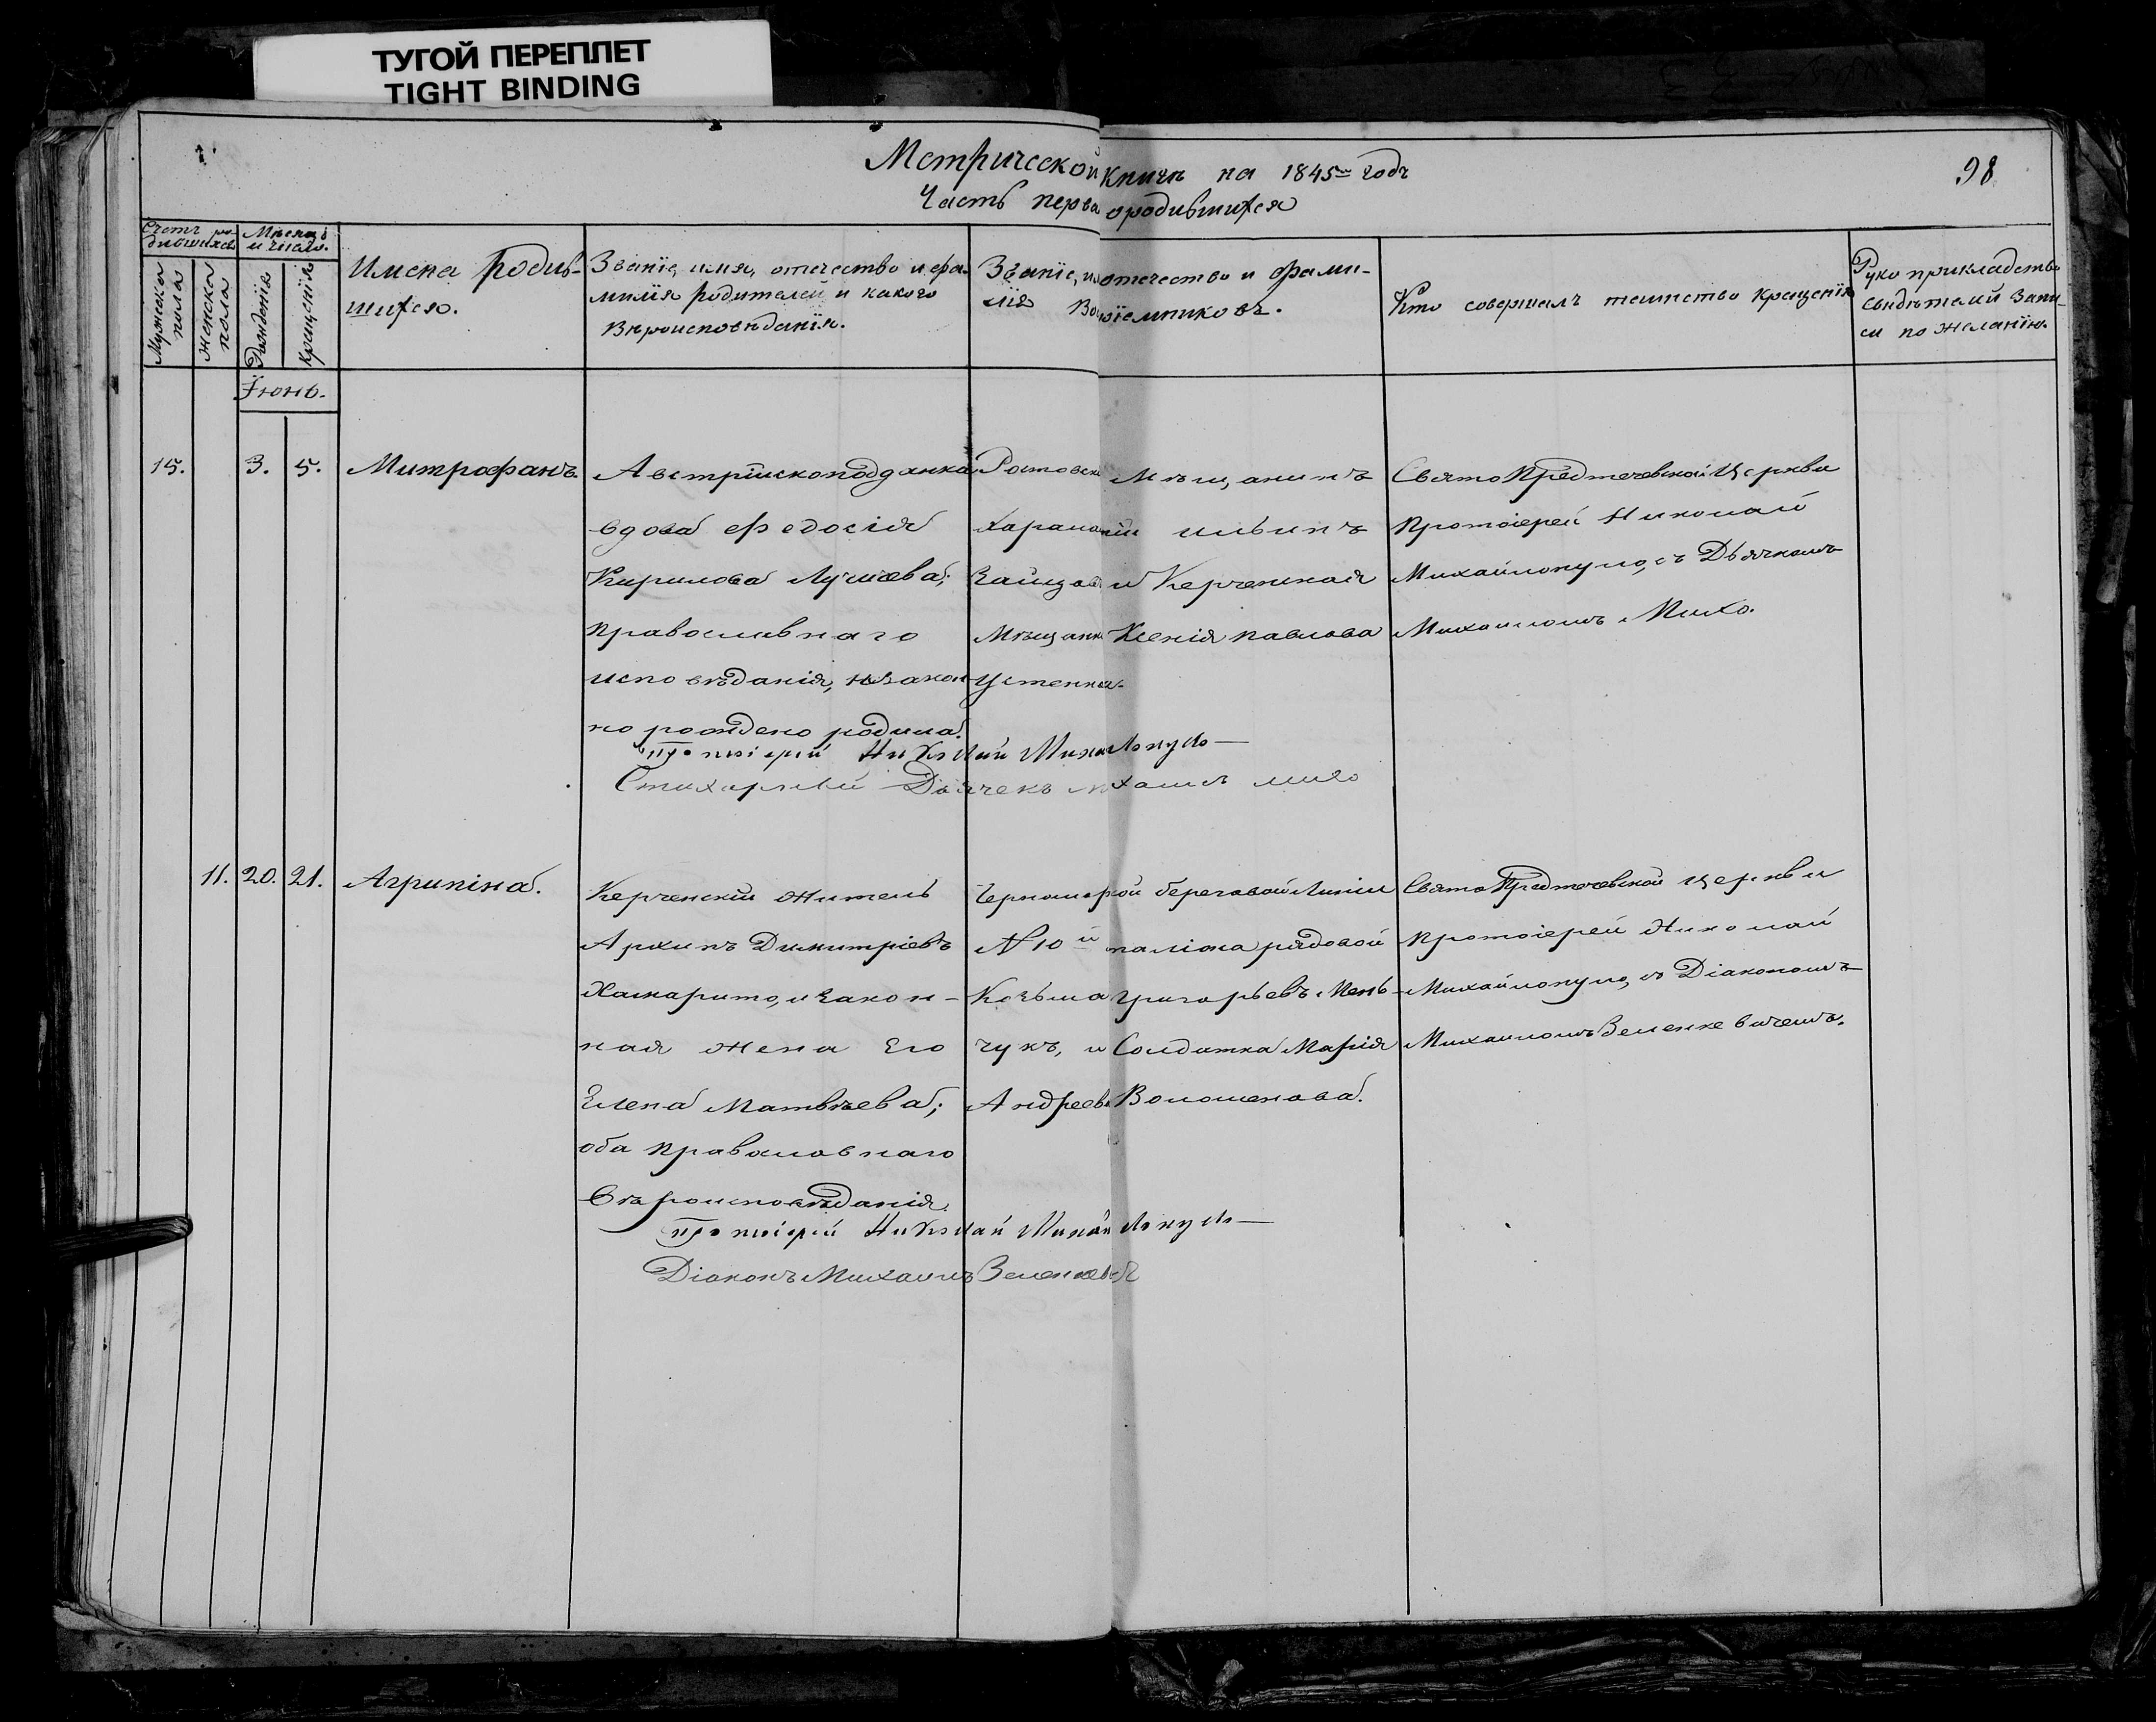 ТУГОЙ ПЕРЕПЛЕТ
TIGHT BINDING
Метрической книги на 1845го годъ
98
Часть перва о родившихся
Счетъ родившихся
Мужеска пола
Женска пола
Мѣсяцъ и число.
Рожденія
Крещенія
Имена родив-
шихся.
Званіе, имя, отечество и фа-
милія родителей и какого
Вѣроисповѣданія.
Званіе, и отечество и фами-
лія Воспріемниковъ.
Кто совершалъ таинство крещенія
Рукоприкладство
свидѣтелей запи-
си по желанію.
Іюнь.
15.
3.
5.
Митрофанъ.
Австрійскоподданка
вдова Федосія
Кирилова Лучшева;
Православнаго
исповѣданія, незакон-
но рождено родила.
Ростовск Мѣщанинъ
Ильинъ
и Керченская
Мѣщанк Ксенія Павлова
Устенка.
Свято Предтечевской Церкви
Протоіерей Николай
Михайлопуло, съ Дьячкомъ
Михаиломъ Михо.
Протоіерей Николай Михайлопуло
Стихарный Дьячекъ Михаилъ Михо
11.
20.
21.
Агрипіна.
Керченскій житель
Архипъ Димитріевъ
Хамарито, и закон-
ная жена Его
Елена Матвѣева;
оба Православнаго
Вѣроисповѣданія.
Черноморской береговой Линіи
№ 10й таліона рядовой
Козьма Григорьевъ Мель-
чукъ, и Солдатка Марія
Андреева Волошенова.
Свято Предтечевской Церкви
Протоіерей Николай
Михайлопуло, съ Діакономъ
Михаиломъ Зеленкевичемъ.
Протоіерей Николай Михайлопуло
Діаконъ Михаилъ Зеленкевичъ